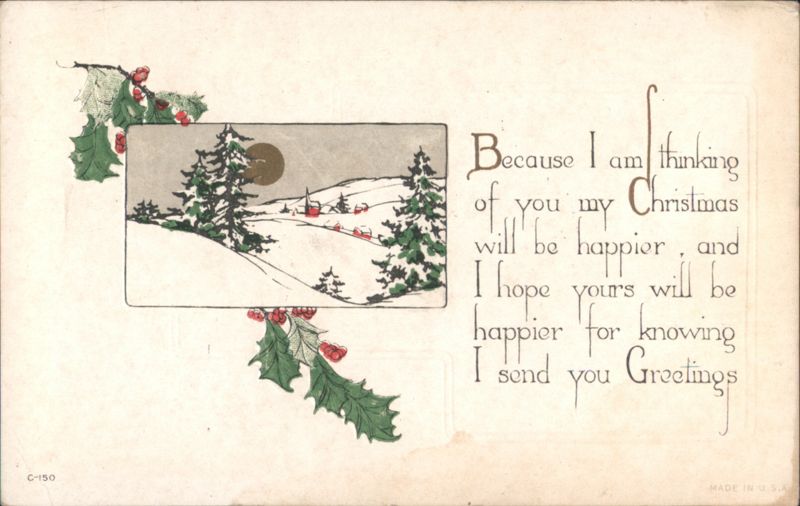 Because I am thinking
of you my Christmas
will be happier, and
I hope yours will be
happier for knowing
I send you Greetings
C-150
MADE IN U.S.A.